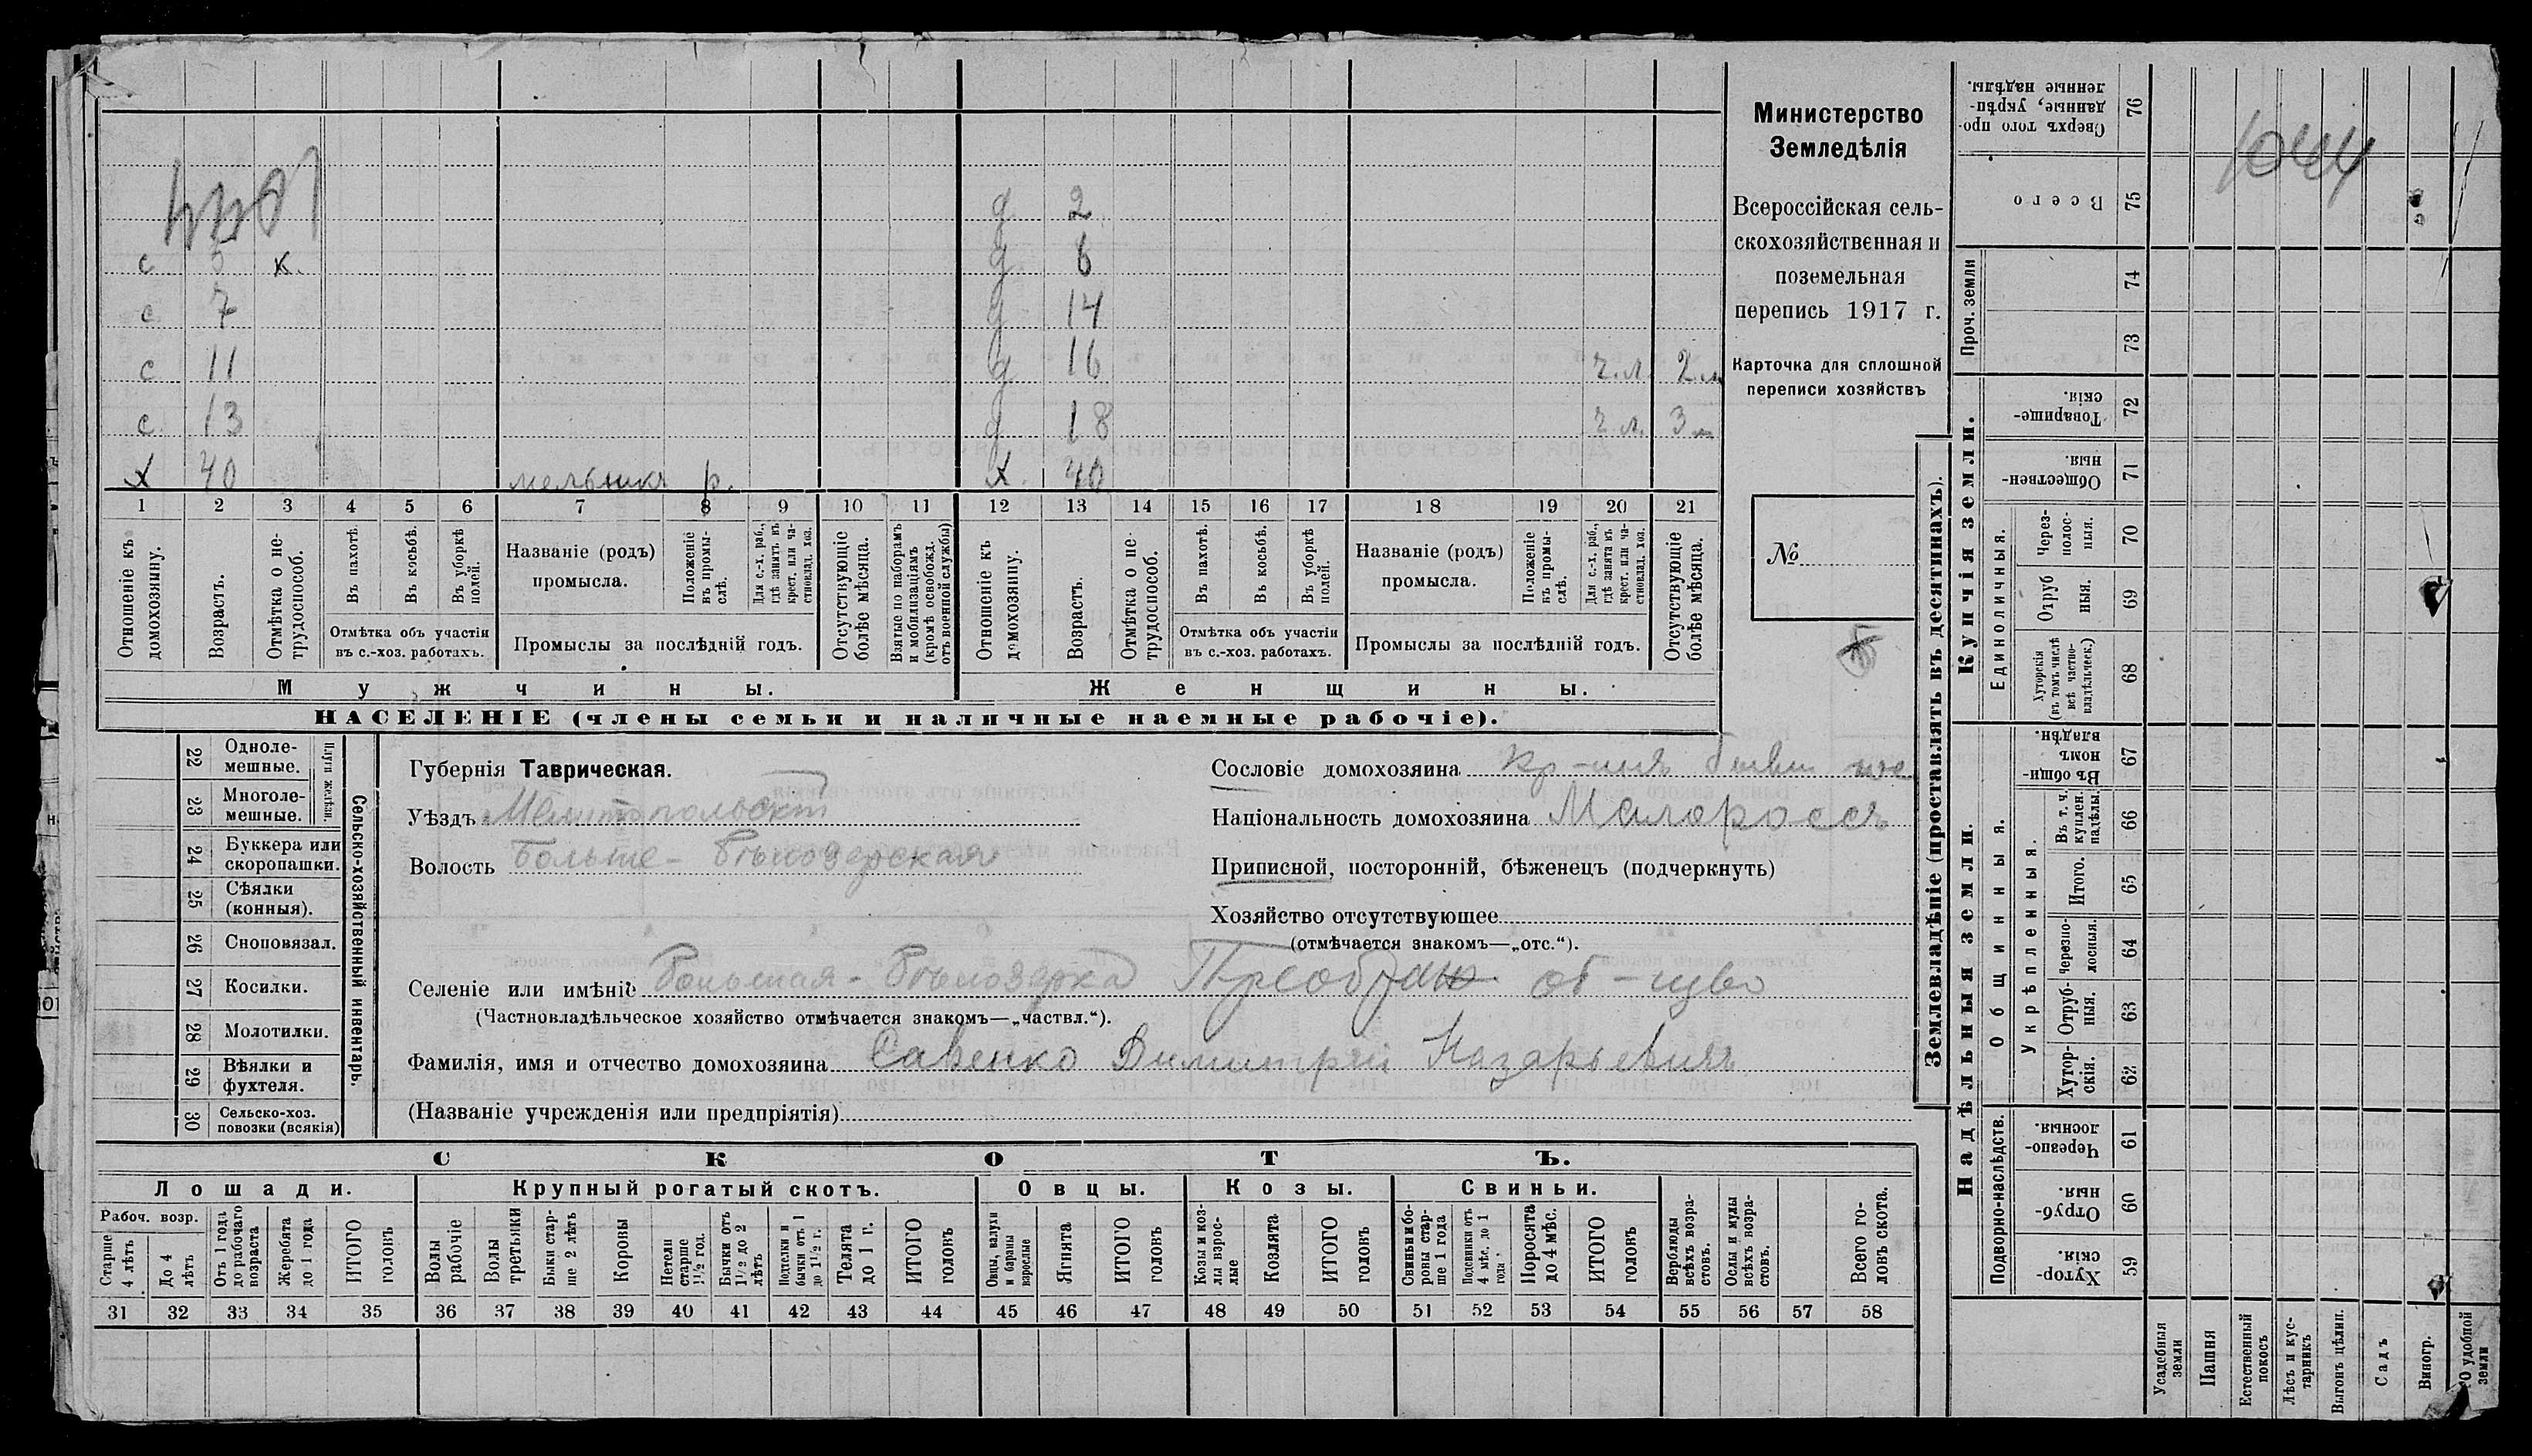 1044
с 5 к.
с 7
с 11
с 13
х 40 мельникъ р.
д 2
д 6
д 14
д 16 ч.л. 2 м
д 18 ч.л. 3 м
х. 40
1 2 3 4 5 6 7 8 9 10 11 12 13 14 15 16 17 18 19 20 21
Отношеніе къ домохозяину.
Возрастъ.
Отмѣтка о нетрудоспособ.
Въ пахотѣ.
Въ косьбѣ.
Въ уборкѣ полей.
Отмѣтка объ участіи
въ с.-хоз. работахъ.
Названіе (родъ)
промысла.
Положеніе въ промыслѣ.
Для с.-х. раб., гдѣ занятъ въ крест. или частновлад. хоз.
Промыслы за послѣдній годъ.
Отсутствующіе болѣе мѣсяца.
Взятые по наборамъ и мобилизаціямъ (кромѣ освобожд. отъ военной службы)
Отношеніе къ домохозяину.
Возрастъ.
Отмѣтка о нетрудоспособ.
Въ пахотѣ.
Въ косьбѣ.
Въ уборкѣ полей.
Отмѣтка объ участіи
въ с.-хоз. работахъ.
Названіе (родъ)
промысла.
Положеніе въ промыслѣ.
Для с.-х. раб., гдѣ занята въ крест. или частновлад. хоз.
Промыслы за послѣдній годъ.
Отсутствующіе болѣе мѣсяца.
Мужчины.
Женщины.
НАСЕЛЕНІЕ (члены семьи и наличные наемные рабочіе).
Министерство
Земледѣлія
Всероссійская сель-
скохозяйственная и
поземельная
перепись 1917 г.
Карточка для сплошной
переписи хозяйствъ
№
Сельско-хозяйственный инвентарь.
Плуги желѣзн.
22 Одноле-
мешные.
23 Многоле-
мешные.
24 Буккера или
скоропашки.
25 Сѣялки
(конныя).
26 Сноповязал.
27 Косилки.
28 Молотилки.
29 Вѣялки и
фухтеля.
30 Сельско-хоз.
повозки (всякія)
Губернія Таврическая.
Уѣздъ Мелитопольскій
Волость Больше-Бѣлозерская
Сословіе домохозяина кр-нинъ бывш
Національность домохозяина Малороссъ
Приписной, посторонній, бѣженецъ (подчеркнуть)
Хозяйство отсутствующее
(отмѣчается знакомъ—„отс.“).
Селеніе или имѣніе Большая-Бѣлозерка Преображ. об-щво
(Частновладѣльческое хозяйство отмѣчается знакомъ—„частвл.“).
Фамилія, имя и отчество домохозяина Савенко Димитрій Назарьевичъ
(Названіе учрежденія или предпріятія)
СКОТЪ.
Лошади. Крупный рогатый скотъ. Овцы. Козы. Свиньи.
Рабоч. возр.
Старше 4 лѣтъ
До 4 лѣтъ
Отъ 1 года до рабочаго возраста
Жеребята до 1 года
ИТОГО головъ
Волы рабочіе
Волы третьяки
Быки старше 2 лѣтъ
Коровы
Нетели старше 1½ год.
Бычки отъ 1½ до 2 лѣтъ
Подтелки и бычки отъ 1 до 1½ г.
Телята до 1 г.
ИТОГО головъ
Овцы, валухи и бараны взрослые
Ягнята
ИТОГО головъ
Козы и козлы взрослые
Козлята
ИТОГО головъ
Свиньи и боровы старше 1 года
Подсвинки отъ 4 мѣс. до 1 года
Поросята до 4 мѣс.
ИТОГО головъ
Верблюды всѣхъ возрастовъ.
Ослы и мулы всѣхъ возрастовъ.
Всего головъ скота.
31 32 33 34 35 36 37 38 39 40 41 42 43 44 45 46 47 48 49 50 51 52 53 54 55 56 57 58
Землевладѣніе (проставлять въ десятинахъ).
Купчія земли.
Сверхъ того проданные, укрѣпленные надѣлы. 76
Всего 75
Проч. земли
74
73
Товарищескія. 72
Общественныя. 71
Единоличныя.
Черезполосныя. 70
Отрубныя. 69
Хуторскія (въ томъ числѣ всѣ частновладѣльческ.) 68
Надѣльныя земли.
Общинныя.
Въ общинномъ владѣн. 67
Укрѣпленныя.
Въ т. ч. куплен. надѣлы. 66
Итого. 65
Черезполосныя. 64
Отрубныя. 63
Хуторскія. 62
Подворно-наслѣдств.
Черезполосныя. 61
Отрубныя. 60
Хуторскія. 59
Усадебныя земли
Пашня
Естественный покосъ
Лѣсъ и кустарникъ
Выгонъ цѣлин.
Садъ
Виногр.
О удобной земли